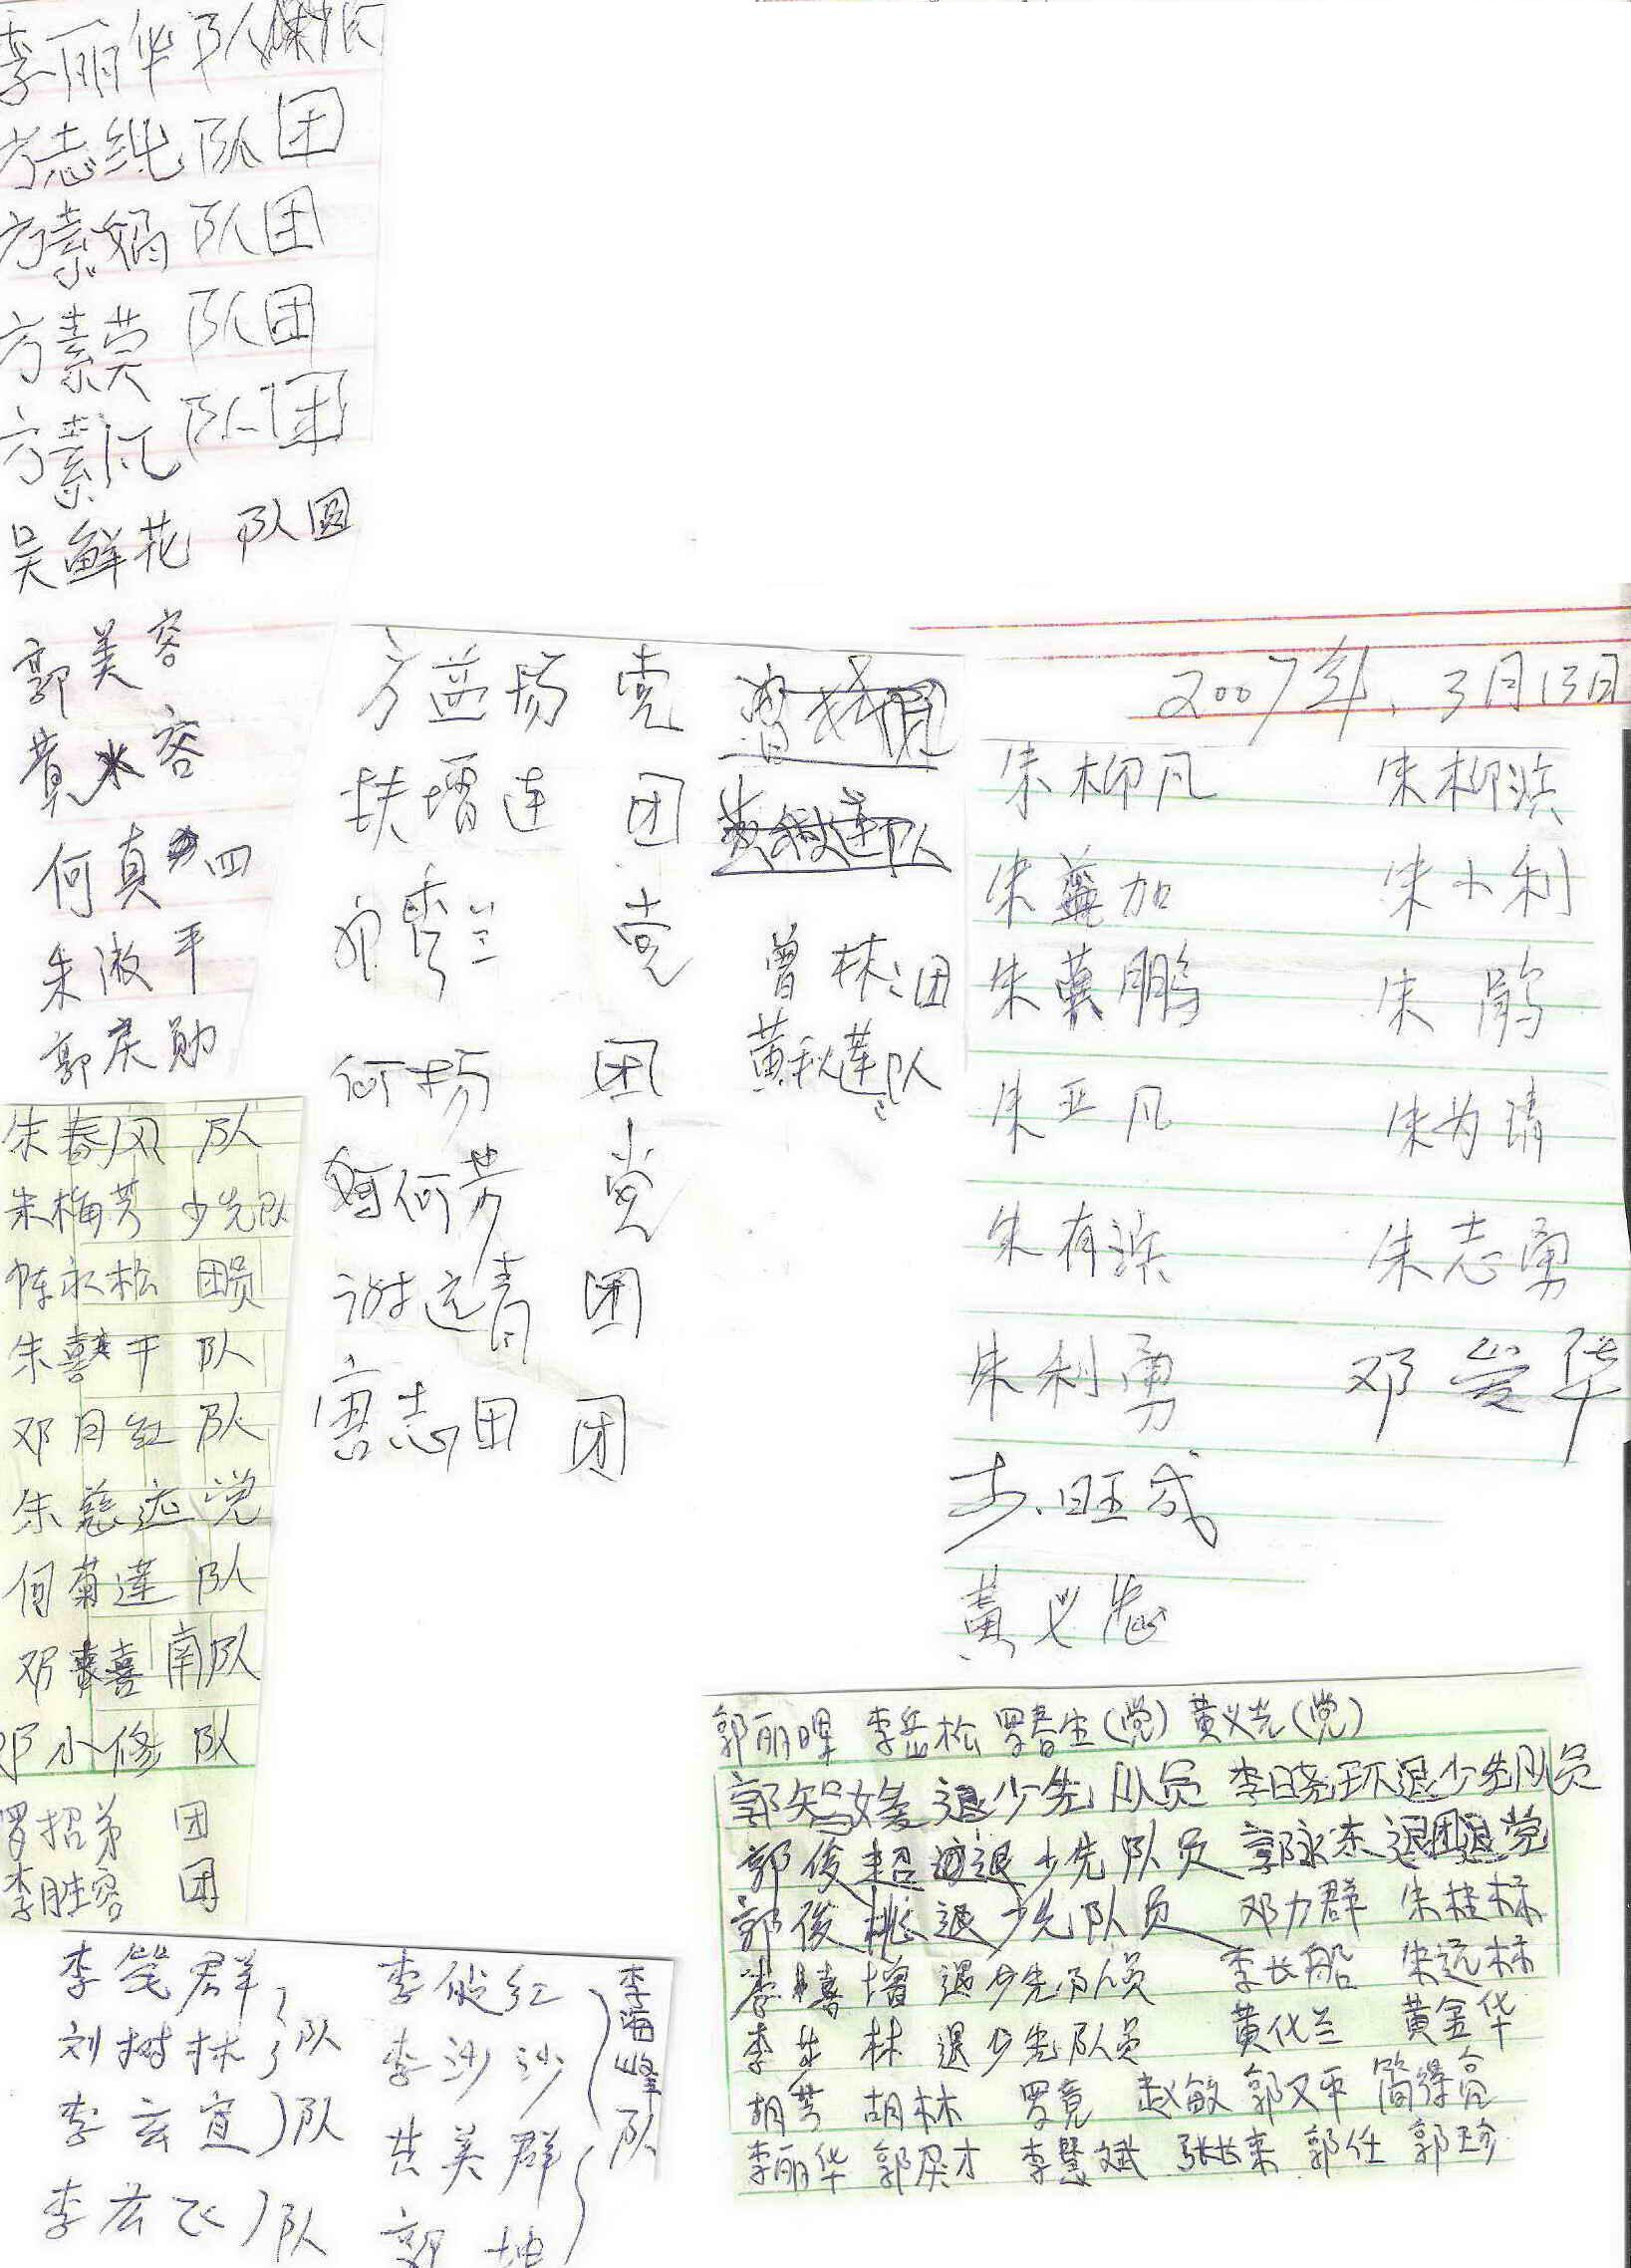 李丽华 队
方志纯 队 团
方素娟 队 团
方素英 队 团
方素 队 团
吴鲜花 队 团
郭美容
黄水容
何真四
朱淑平
郭庆勋
朱春风 队
朱梅芳 少先队
陈永松 团员
朱喜干 队
邓月红 队
朱慈 党
何菊莲 队
邓喜南 队
邓小修 队
罗招弟 团
李胜容 团
方益扬 党
扶增连 团
邓秀兰 党
何扬 团
何芳 党
谢远青 团
唐志田 团
曾林 团
黄秋莲 队
2007年.3月13日
朱柳凡 朱柳滨
朱 加 朱小利
朱 鹏 朱鹃
朱亚凡 朱为靖
朱有滨 朱志勇
朱利勇 邓爱华
旺成
黄义忠
郭丽晖 李岳松 罗春生(党) 黄义光(党)
郭 媛 退少先队员 李晓环退少先队员
郭俊超 退少先队员 郭永东 退团退党
郭俊桃 退少先队员 邓力群 朱桂林
李喜增 退少先队员 李长船 朱远林
李 林 退少先队员 黄化兰 黄金华
胡芳 胡林 罗竟 赵敏 郭又平 简得亮
李丽华 郭 才 李慧斌 张长来 郭任 郭珍
李 群 李 红
刘树林 队 李沙沙
李海峰 队
李 宜 队 美群
李宏飞 队 郭